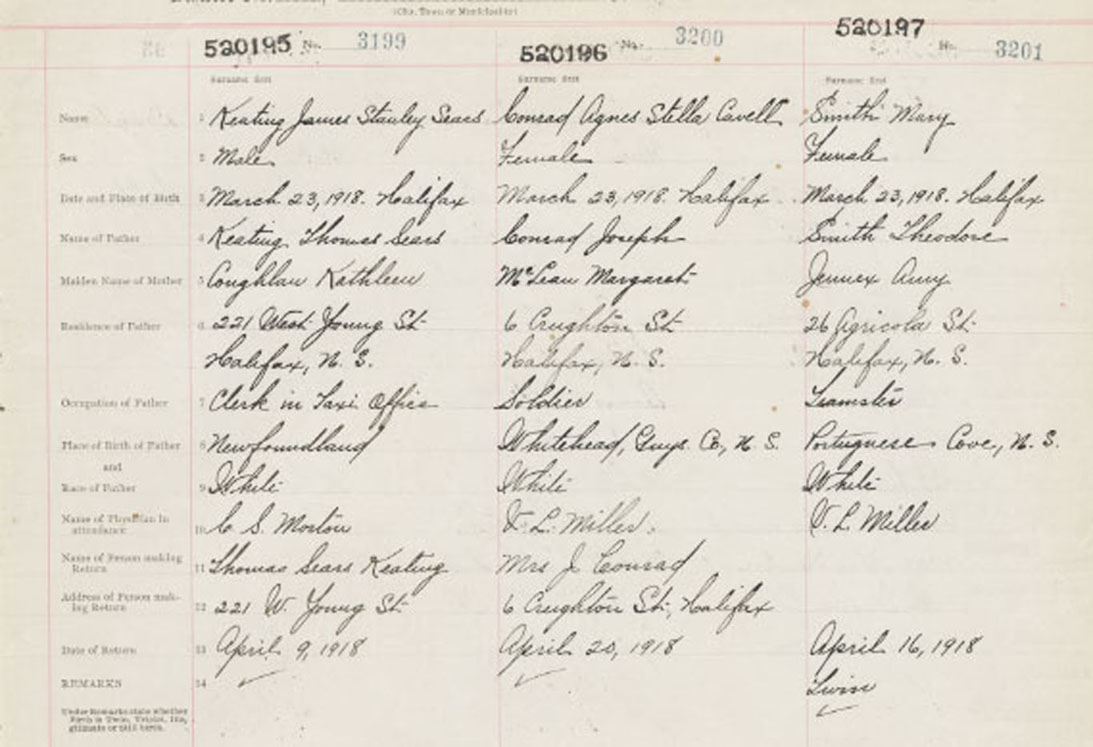 (City, Town or Municipality)
520195 No. 3199 520196 No. 3200 520197 No. 3201
Surname first Surname first Surname first
Name 1 Keating James Stanley Sears Conrad Agnes Stella Cavell Smith Mary
Sex 2 Male Female Female
Date and Place of Birth 3 March 23, 1918. Halifax March 23, 1918. Halifax March 23, 1918. Halifax
Name of Father 4 Keating Thomas Sears Conrad Joseph Smith Theodore
Maiden Name of Mother 5 Coughlan Kathleen McLean Margaret Jennex Amy
Residence of Father 6 221 West Young St. 6 Creighton St. 26 Agricola St.
Halifax, N. S. Halifax, N. S. Halifax, N. S.
Occupation of Father 7 Clerk in Taxi Office Soldier Teamster
Place of Birth of Father 8 Newfoundland Whitehead, Guys. Co, N. S. Portuguese Cove, N. S.
and
Race of Father 9 White White White
Name of Physician in
attendance 10 C S. Morton V. L. Miller. V. L. Miller
Name of Person making
Return 11 Thomas Sears Keating Mrs J Conrad
Address of Person mak-
ing Return 12 221 W. Young St. 6 Creighton St., Halifax
Date of Return 13 April 9, 1918 April 20, 1918 April 16, 1918
REMARKS 14 Twin
Under Remarks state whether
Birth is Twin, Triplet, Ille-
gitimate or still birth.